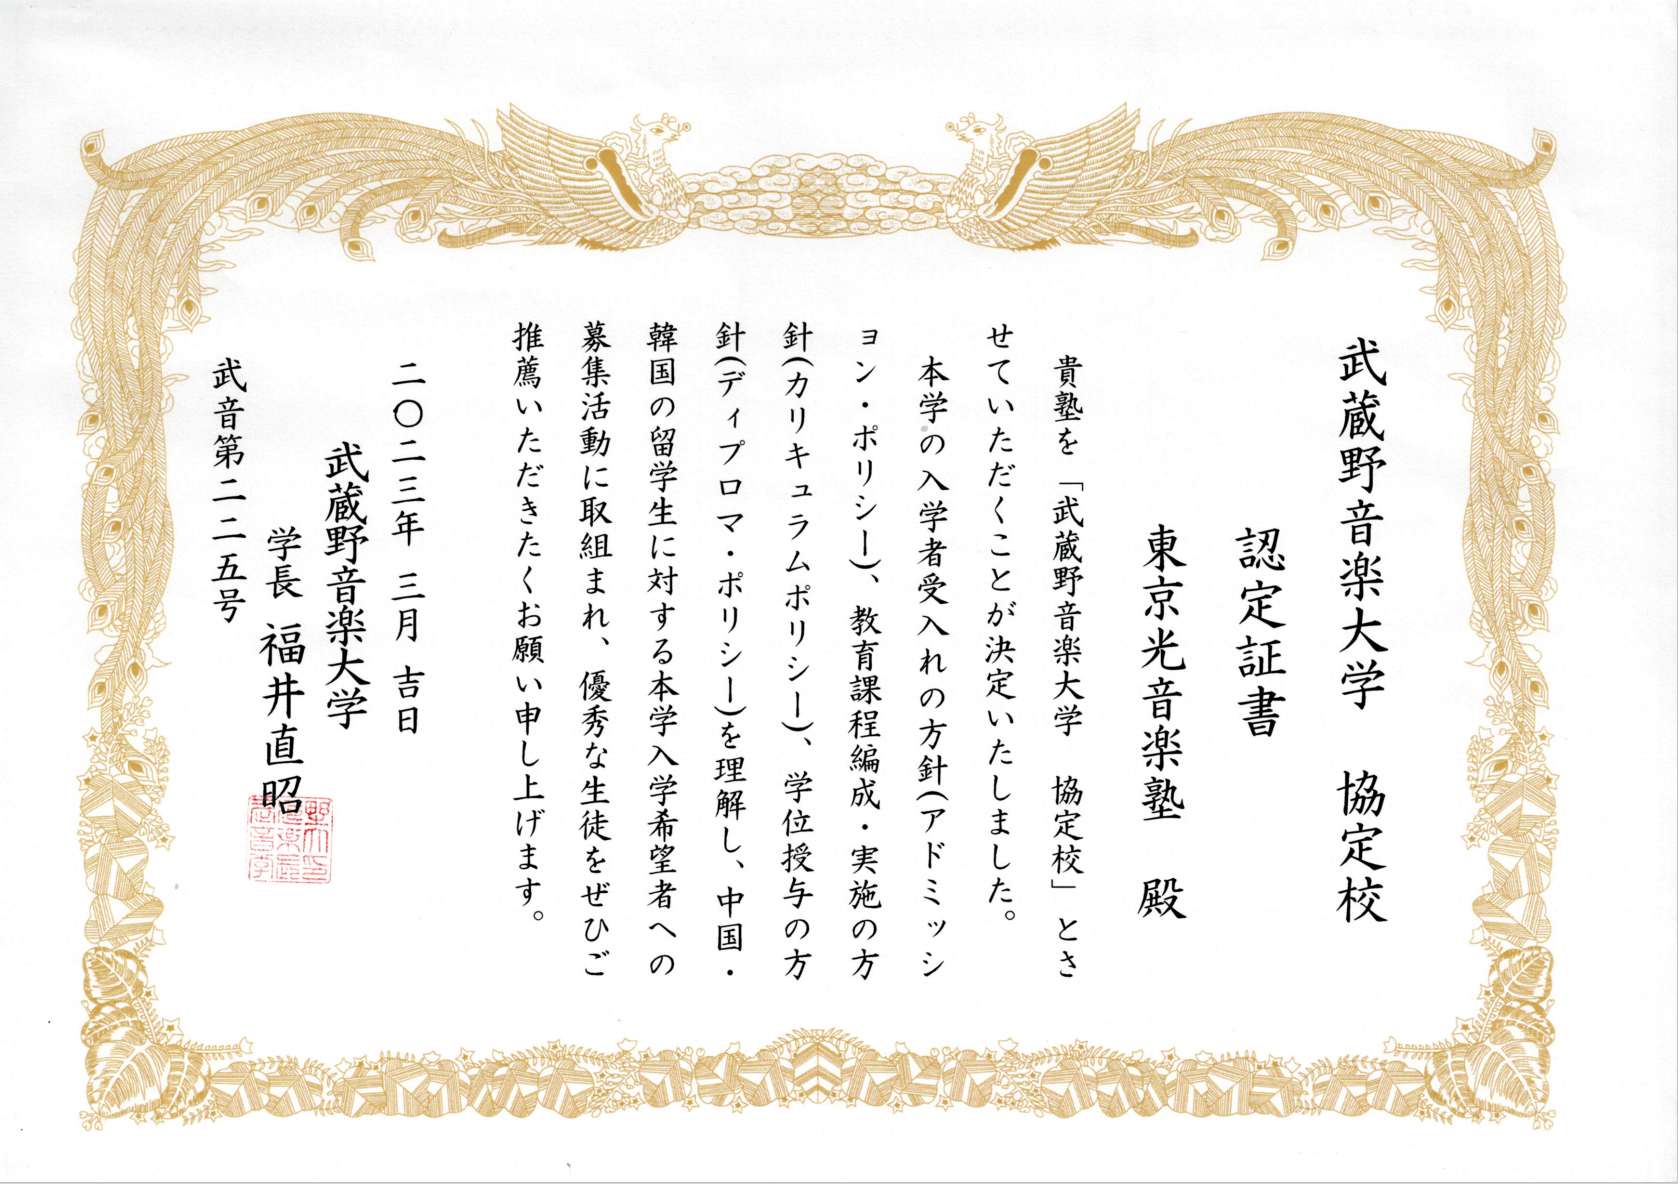 武蔵野音楽大学　協定校
認定証書
東京光音楽塾　殿
貴塾を「武蔵野音楽大学　協定校」とさ
せていただくことが決定いたしました。
本学の入学者受入れの方針(アドミッシ
ョン・ポリシー)、教育課程編成・実施の方
針(カリキュラムポリシー)、学位授与の方
針(ディプロマ・ポリシー)を理解し、中国・
韓国の留学生に対する本学入学希望者への
募集活動に取組まれ、優秀な生徒をぜひご
推薦いただきたくお願い申し上げます。
二〇二三年 三月 吉日
武蔵野音楽大学
学長 福井直昭
武音第二二五号